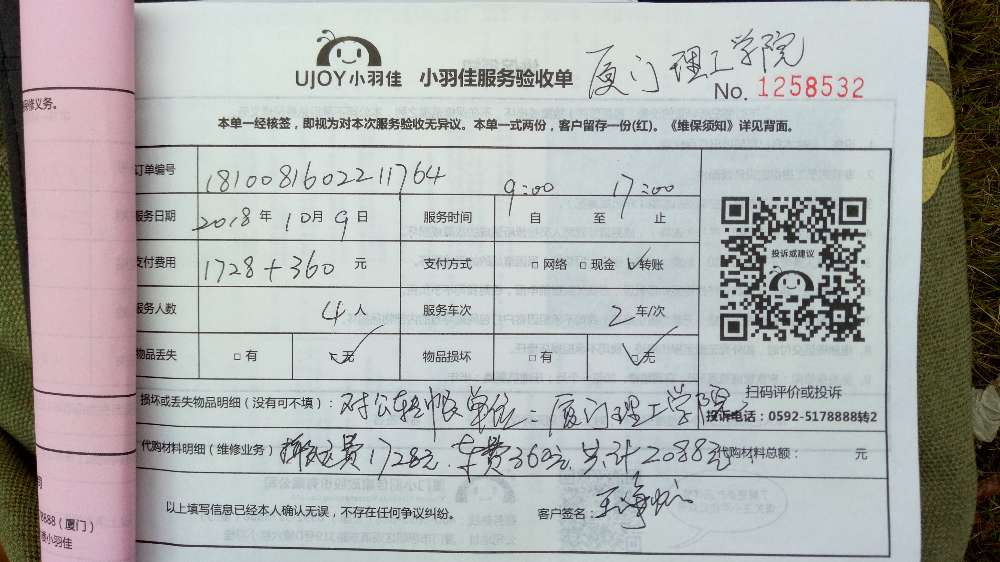 UJOY小羽佳 小羽佳服务验收单 厦门理工学院
No. 1258532
本单一经核签，即视为对本次服务验收无异议。本单一式两份，客户留存一份(红)。《维保须知》详见背面。
修义务。
订单编号 1810081602211764 9:00 17:00
服务日期 2018年10月9日 服务时间 自 至 止
投诉或建议
支付费用 1728+360 元 支付方式 □网络 □现金 ☑转账
服务人数 4人 服务车次 2车/次
物品丢失 □有 ☑无 物品损坏 □有 ☑无
扫码评价或投诉
损坏或丢失物品明细（没有可不填）：对公转账单位：厦门理工学院
投诉电话：0592-5178888转2
代购材料明细（维修业务）搬运费1728元.车费360元.共计2088元 代购材料总额： 元
以上填写信息已经本人确认无误，不存在任何争议纠纷。 客户签名：
8688（厦门）
小羽佳